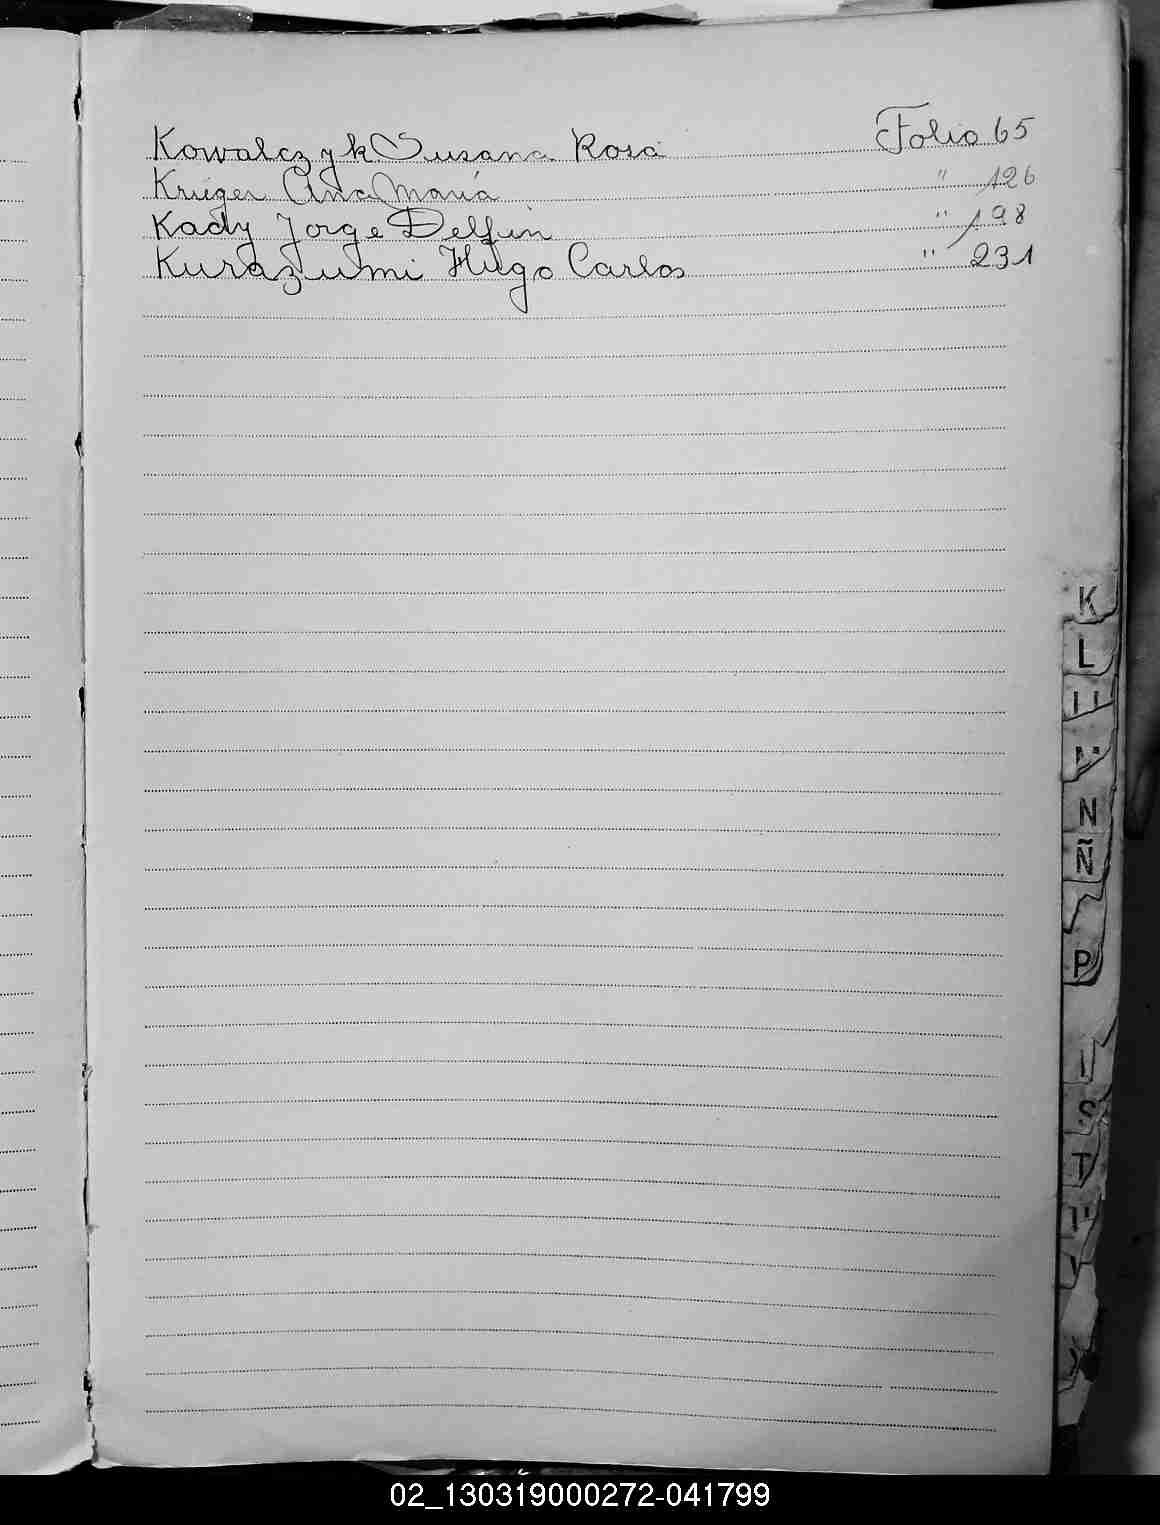 Kowalczyk Susana Rosa Folio 65
Krieger Ana María " 126
Kady Jorge Delfin " 198
Kurazumi Hugo Carlos " 231
K
L
N
Ñ
P
S
T
02_130319000272-041799